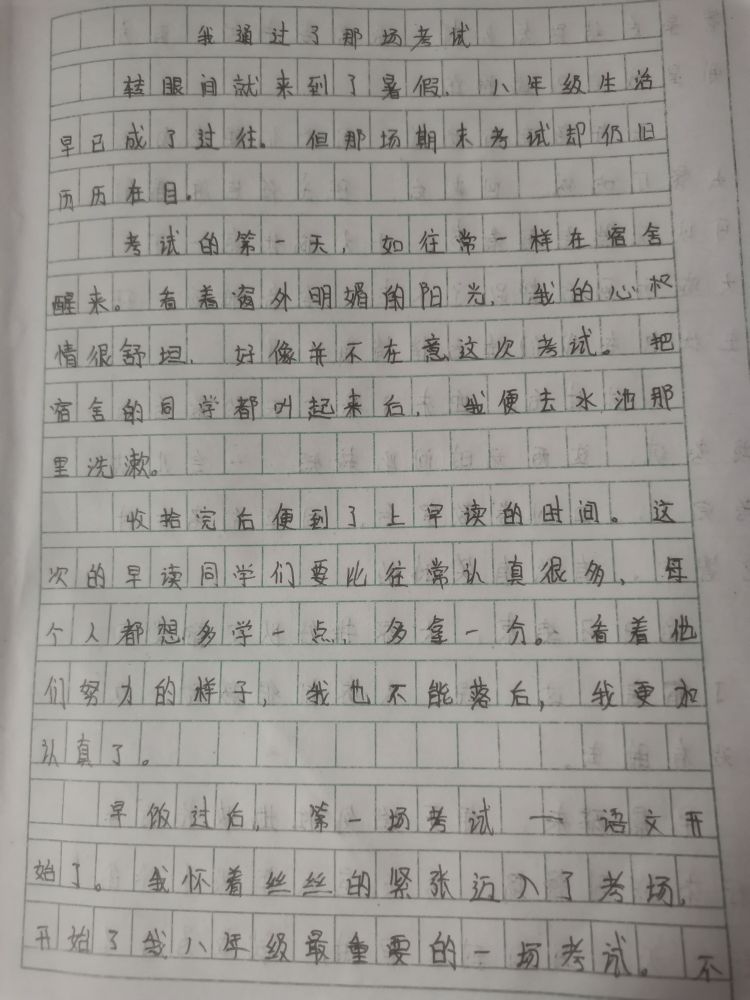 我通过了那场考试
转眼间就来到了暑假，八年级生活
早已成了过往。但那场期末考试却仍旧
历历在目。
考试的第一天，如往常一样在宿舍
醒来。看着窗外明媚的阳光，我的心
情很舒坦，好像并不在意这次考试。把
宿舍的同学都叫起来后，我便去水池那
里洗漱。
收拾完后便到了上早读的时间。这
次的早读同学们要比往常认真很多，每
个人都想多学一点，多拿一分。看着他
们努力的样子，我也不能落后，我更加
认真了。
早饭过后，第一场考试——语文开
始了。我怀着丝丝的紧张迈入了考场，
开始了我八年级最重要的一场考试。不